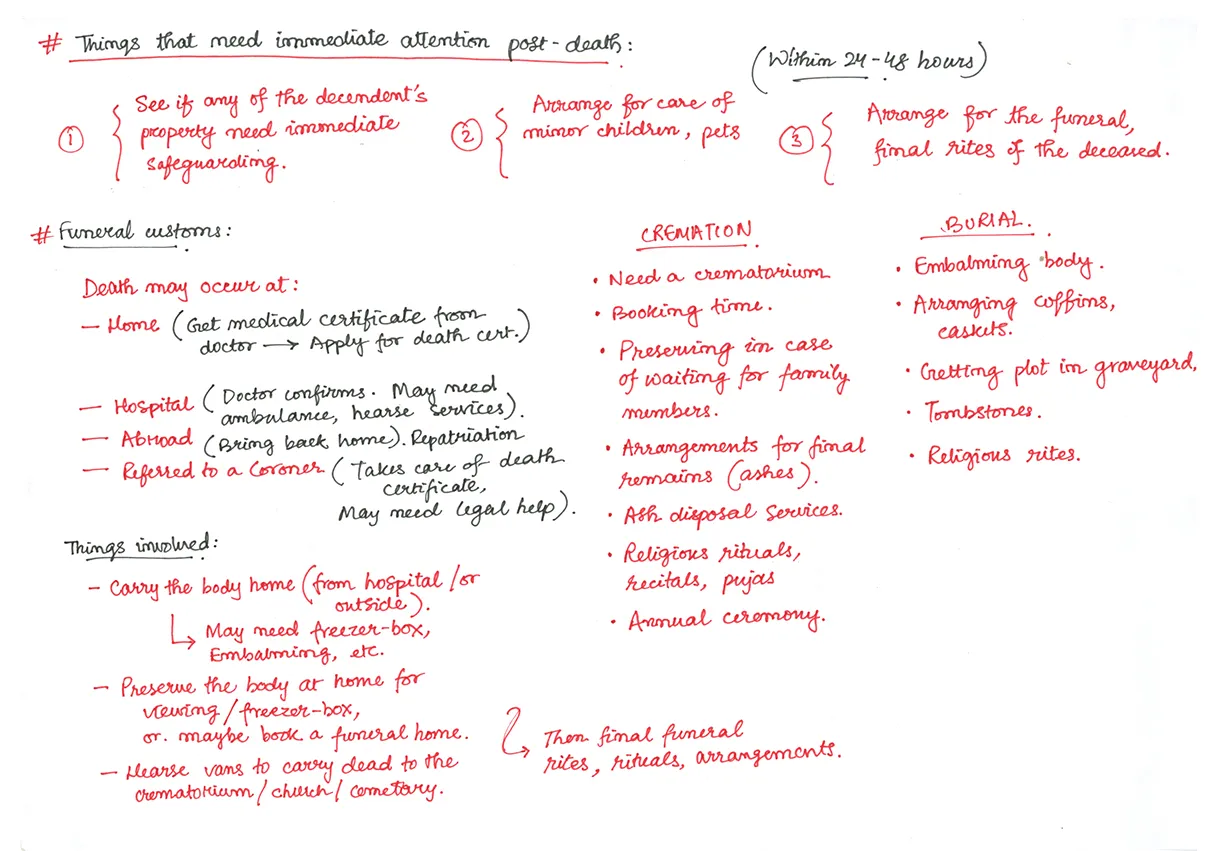 # Things that need immediate attention post-death:
(Within 24-48 hours)
1 { See if any of the decendent's
property need immediate
safeguarding.
2 { Arrange for care of
minor children, pets
3 { Arrange for the funeral,
final rites of the deceased.
# Funeral customs:
Death may occur at:
— Home (Get medical certificate from
doctor → Apply for death cert.)
— Hospital (Doctor confirms. May need
ambulance, hearse services).
— Abroad (Bring back home). Repatriation
— Referred to a Coroner (Takes care of death
certificate,
May need legal help).
Things involved:
— Carry the body home (from hospital /or
outside).
↳ May need freezer-box,
Embalming, etc.
— Preserve the body at home for
viewing/freezer-box,
or. maybe book a funeral home.
— Hearse vans to carry dead to the
crematorium/church/cemetary.
↳ Then final funeral
rites, rituals, arrangements.
CREMATION.
• Need a crematorium
• Booking time.
• Preserving in case
of waiting for family
members.
• Arrangements for final
remains (ashes).
• Ash disposal services.
• Religious rituals,
recitals, pujas
• Annual ceremony.
BURIAL.
• Embalming body.
• Arranging coffins,
caskets.
• Getting plot in graveyard,
• Tombstones.
• Religious rites.